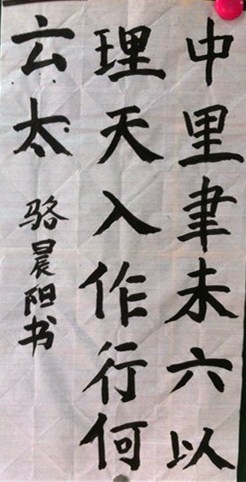 中里聿未六以
理天入作行何
云太
骆晨阳书